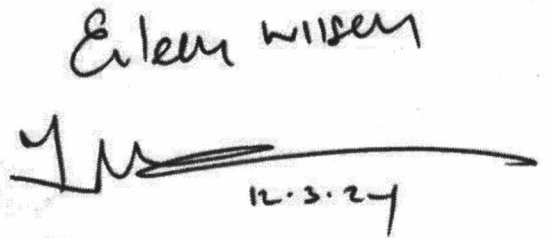 Eileen Wilsen
12.3.24